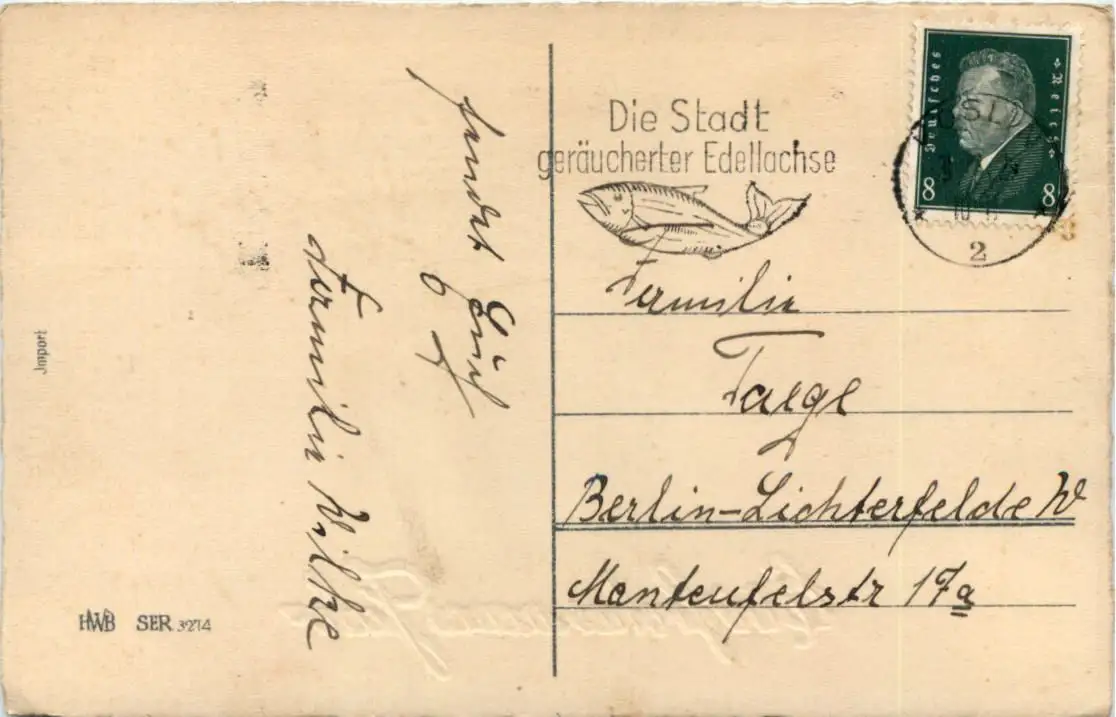 sendet Familie Wilke
Die Stadt
geräucherter Edellachse
Deutsches Reich
8 8
2
Familie
Taege
Berlin-Lichterfelde W
Manteufelstr 17a
Import
HWB SER 3274